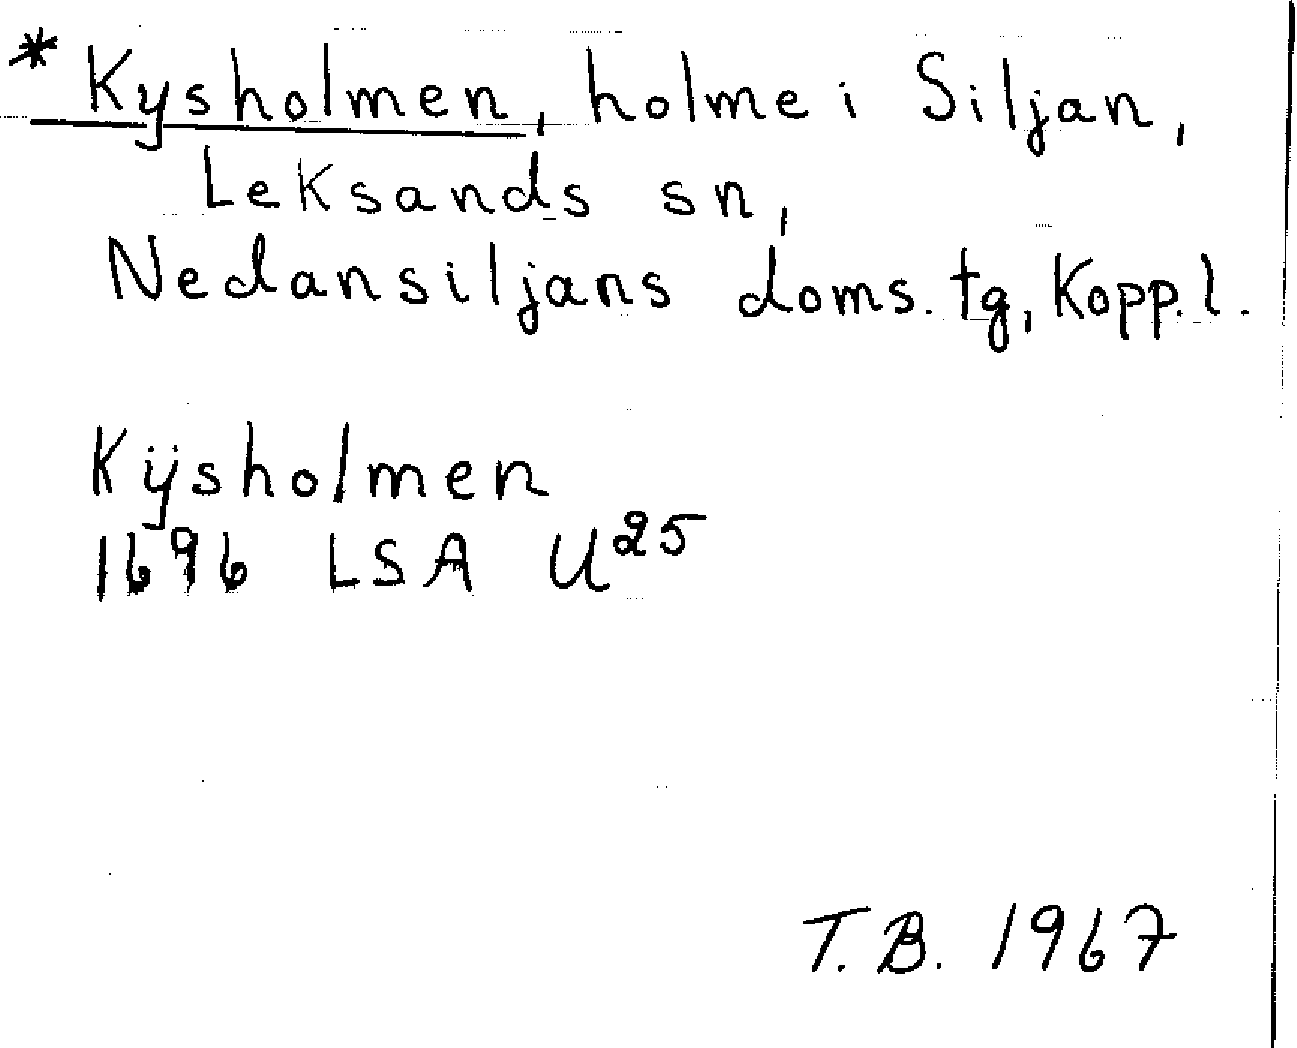 * Kysholmen, holme i Siljan,
Leksands sn,
Nedansiljans doms. tg, Kopp. l.
Kÿsholmen
1696 LSA U²⁵
T. B. 1967